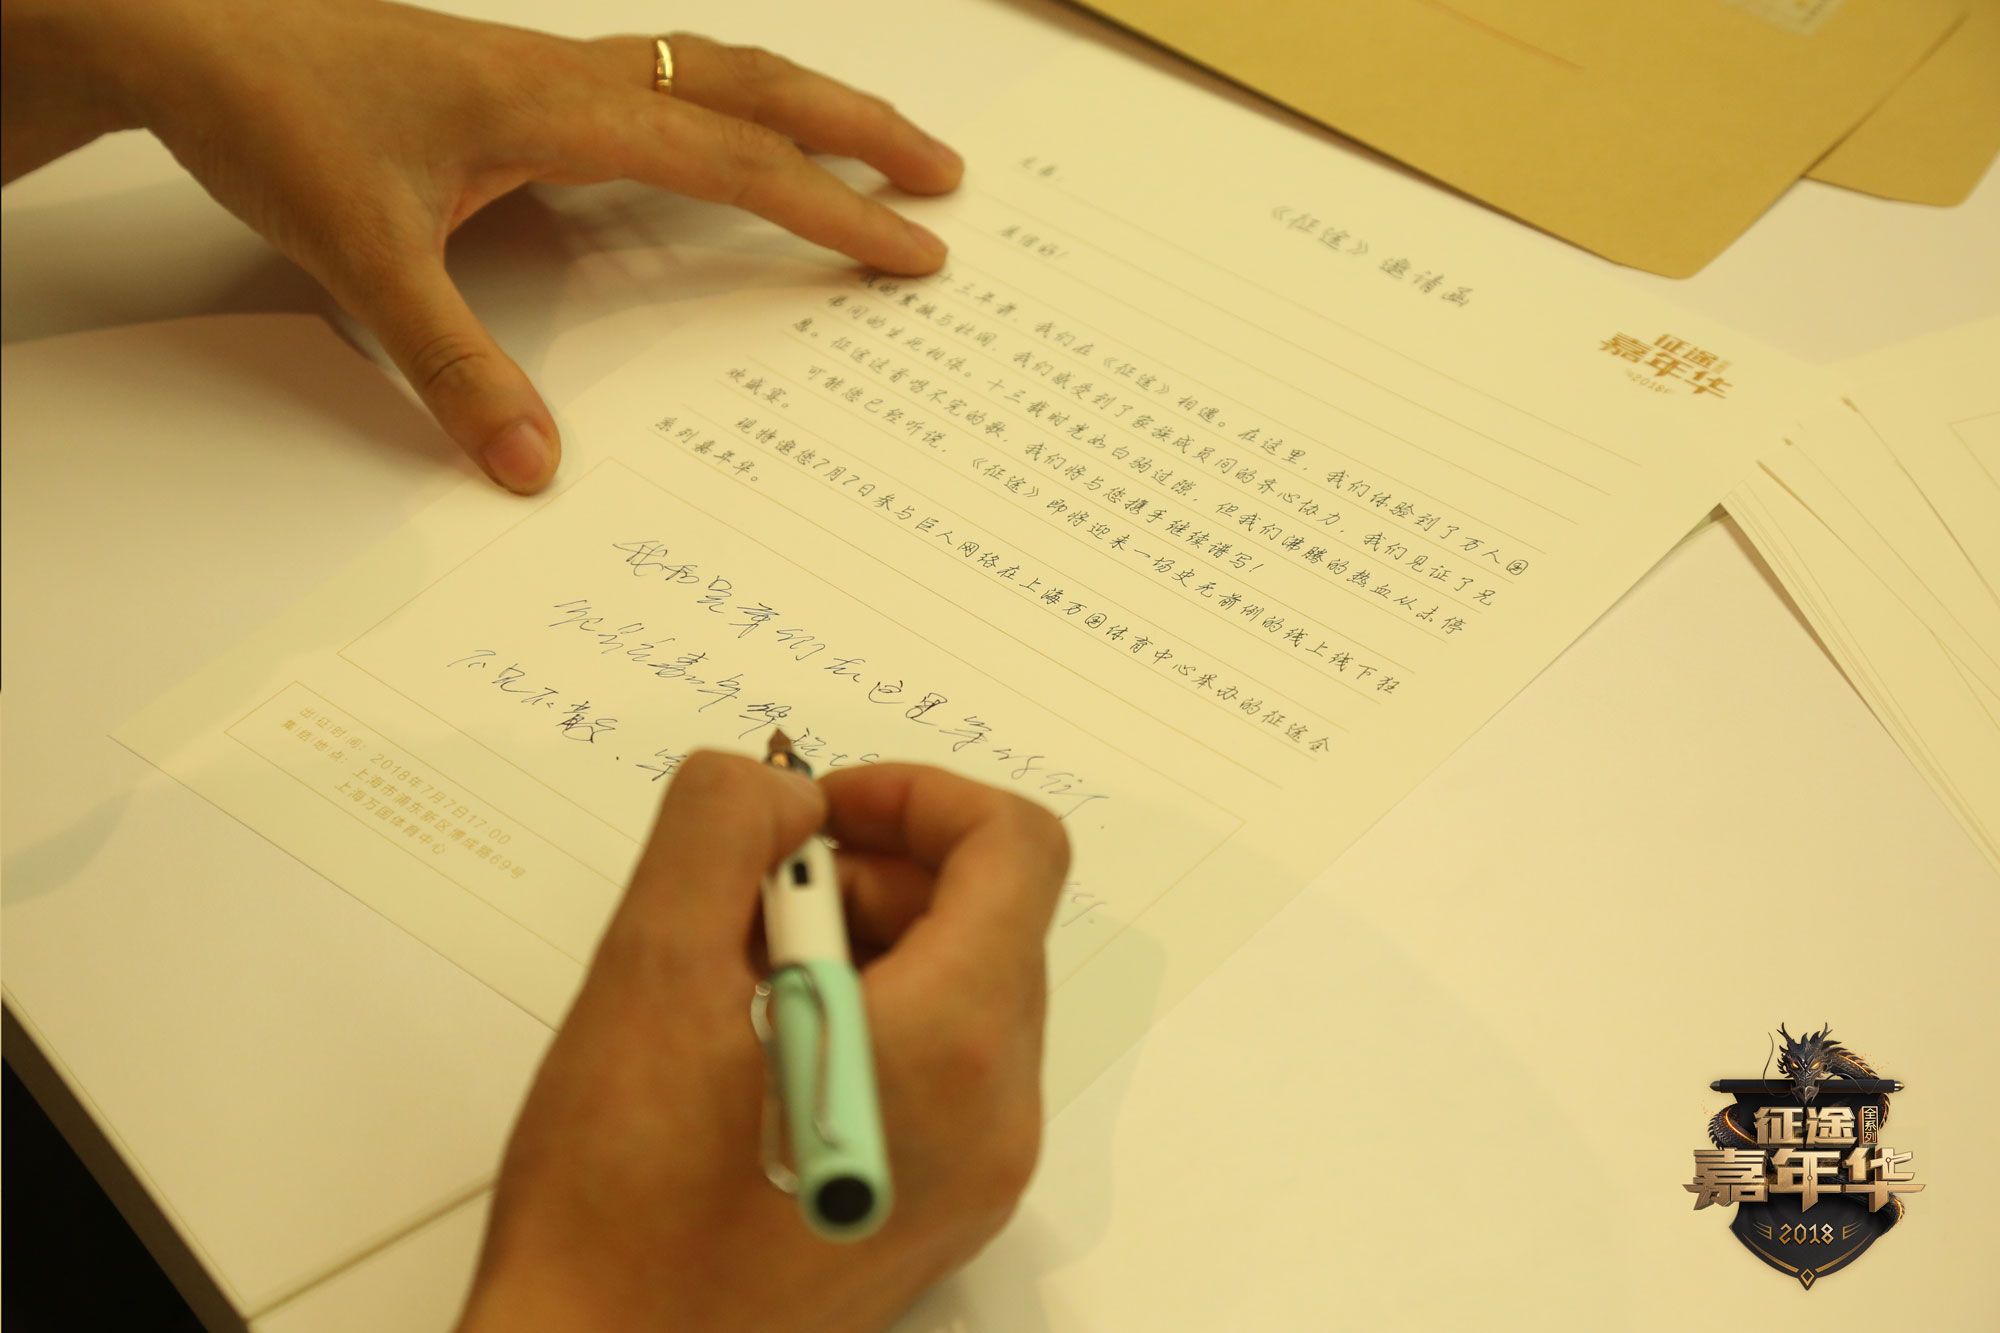 《征途》邀请函
征途
嘉年华
2018
展信好！
十三年前，我们在《征途》相遇。在这里，我们体验到了万人国
战的震撼与壮阔，我们感受到了家族成员间的齐心协力，我们见证了兄
弟间的生死相依。十三载时光如白驹过隙，但我们沸腾的热血从未停
息。征途这首唱不完的歌，我们将与您携手继续谱写！
可能您已经听说，《征途》即将迎来一场史无前例的线上线下狂
欢盛宴。
现特邀您7月7日参与巨人网络在上海万国体育中心举办的征途全
系列嘉年华。
我和兄弟们在这里等你们
嘉年华
不见不散
出征时间：2018年7月7日17:00
集结地点：上海市浦东新区博成路69号
上海万国体育中心
征途全系列
嘉年华
2018